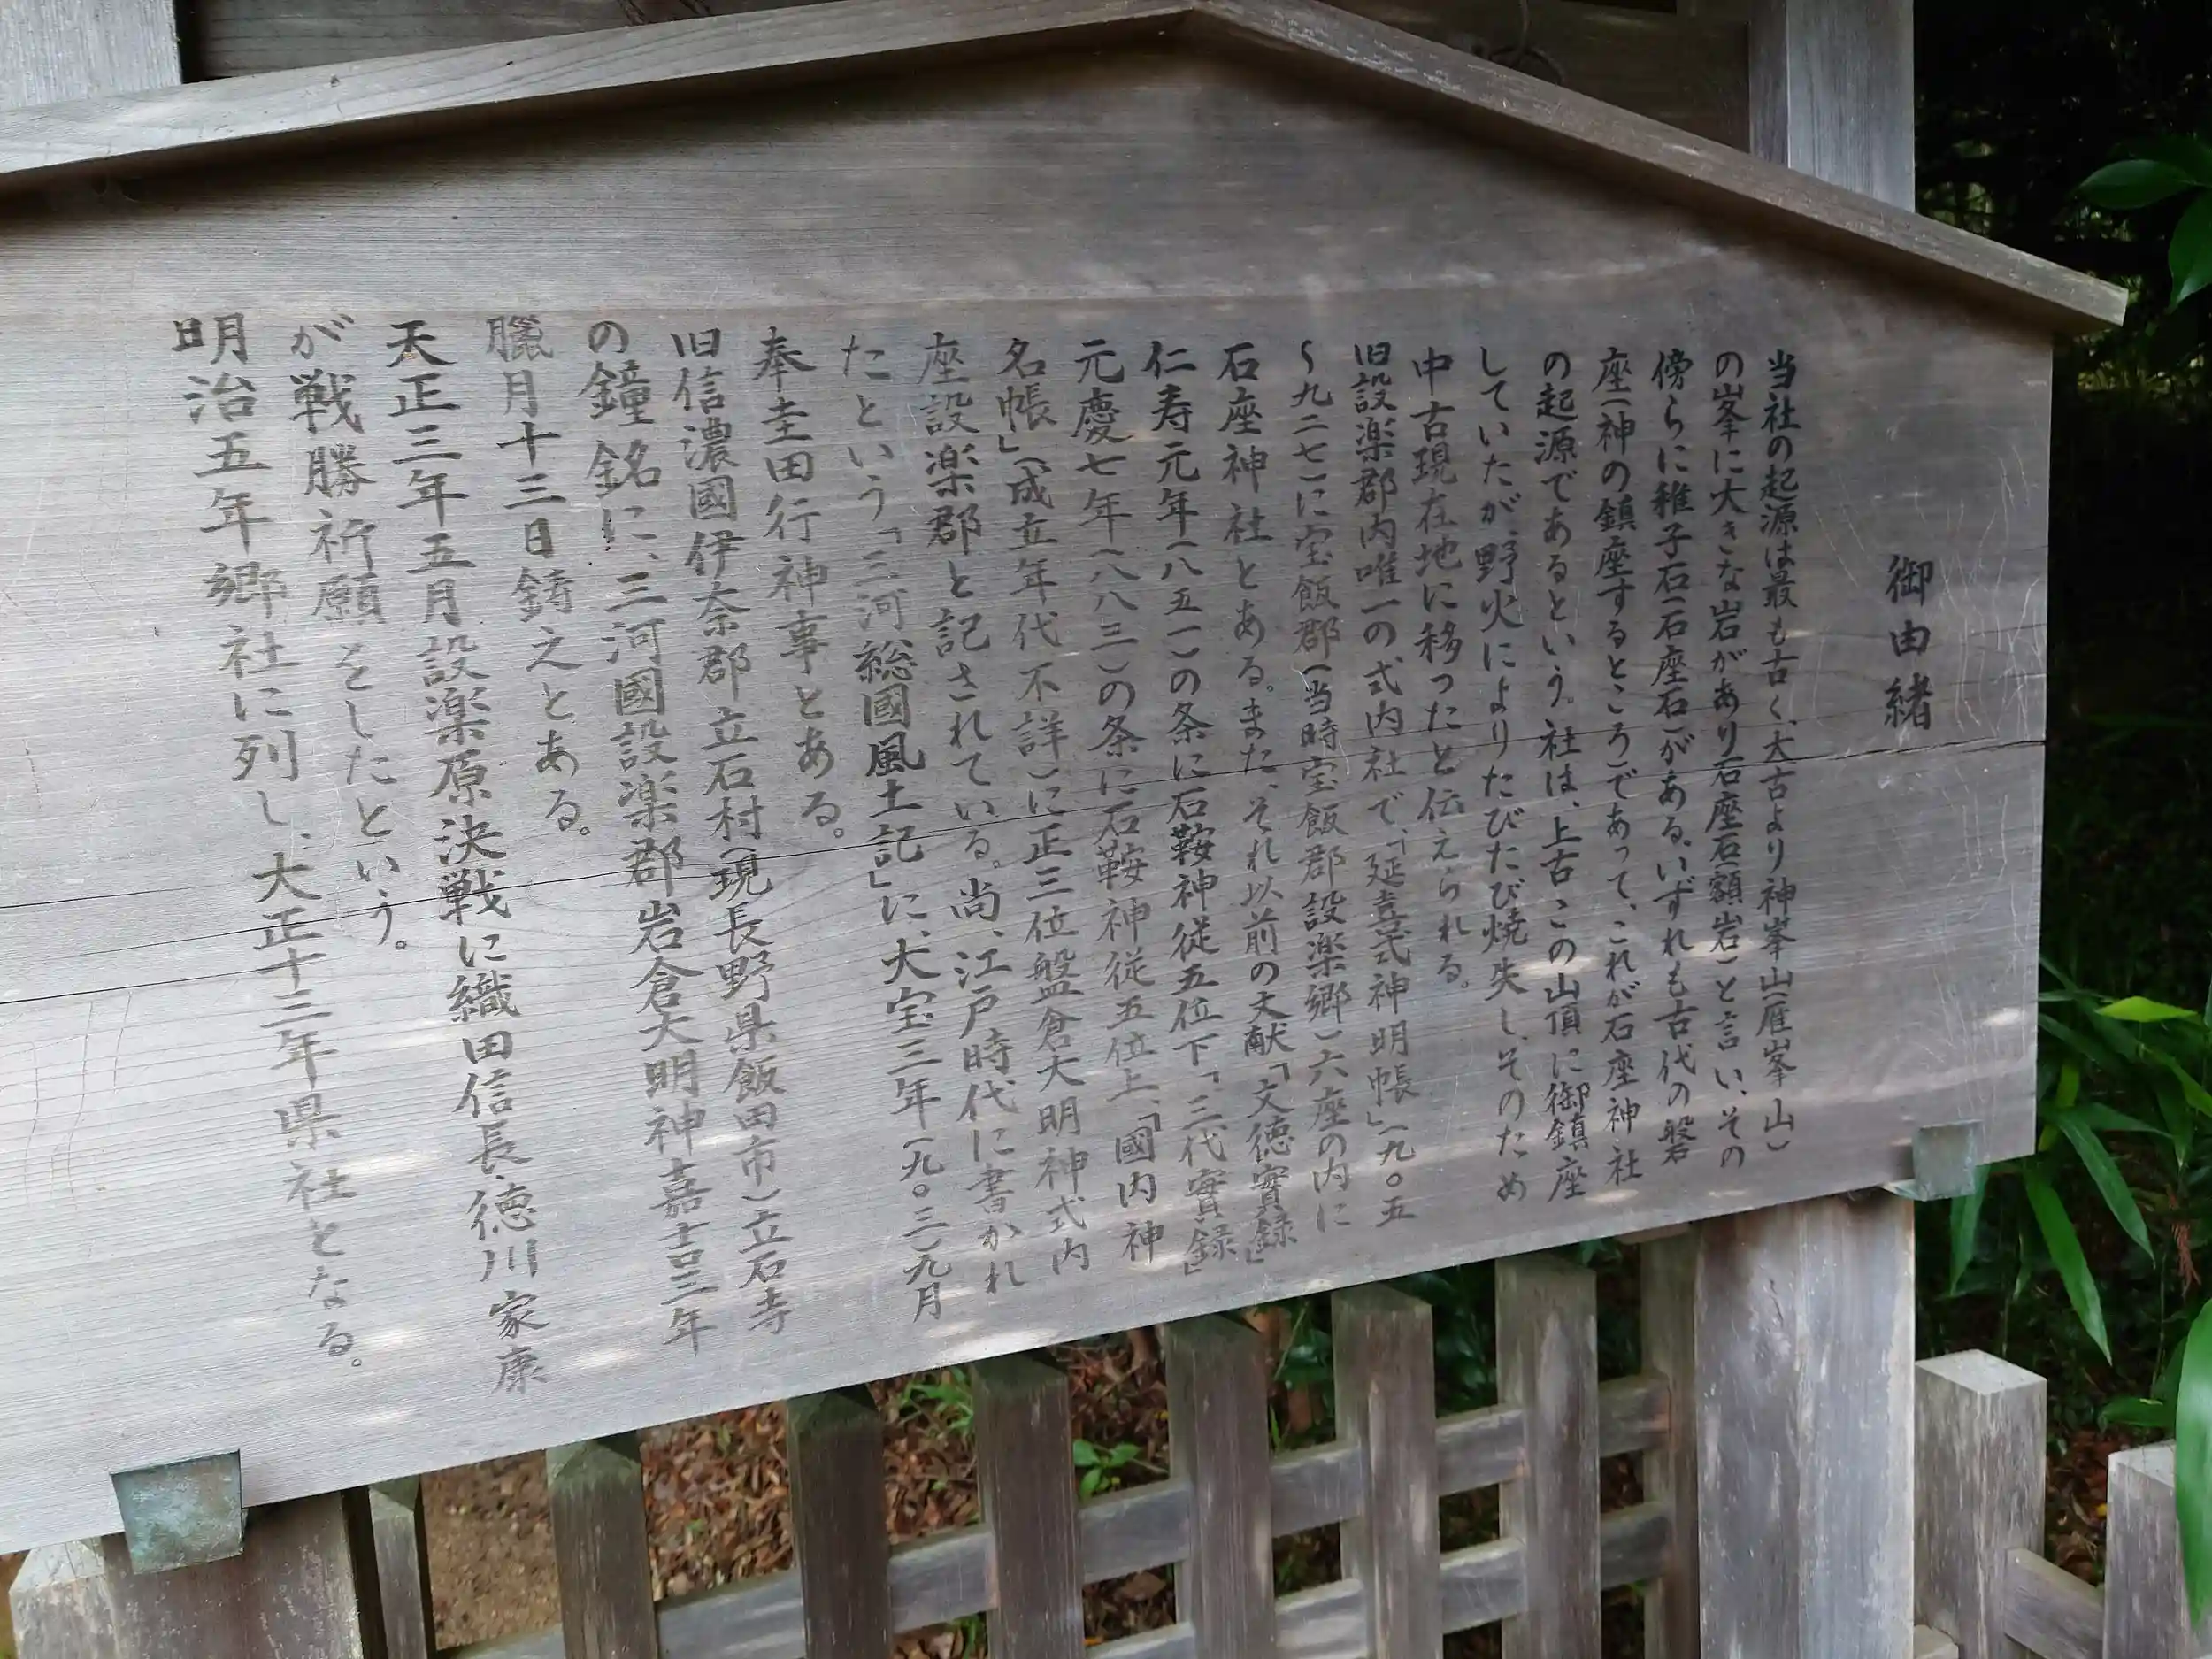 御由緒
当社の起源は最も古く、太古より神峯山(雁峯山)
の峯に大きな岩があり石座石(額岩)と言い、その
傍らに稚子石(石座石)がある。いずれも古代の磐
座(神の鎮座するところ)であって、これが石座神社
の起源であるという。社は、上古この山頂に御鎮座
していたが、野火によりたびたび焼失し、そのため
中古現在地に移ったと伝えられる。
旧設楽郡内唯一の式内社で、「延喜式神明帳」(九〇五
〜九二七)に宝飯郡(当時宝飯郡設楽郷)六座の内に
石座神社とある。また、それ以前の文献「文徳實録」
仁寿元年(八五一)の条に石鞍神従五位下「三代實録」
元慶七年(八八三)の条に石鞍神従五位上、「國内神
名帳」(成立年代不詳)に正三位盤倉大明神式内
座設楽郡と記されている。尚、江戸時代に書かれ
たという「三河総國風土記」に、大宝三年(九〇三)九月
奉圭田行神事とある。
旧信濃國伊奈郡立石村(現長野県飯田市)立石寺
の鐘銘に、三河國設楽郡岩倉大明神嘉吉三年
臘月十三日鋳之とある。
天正三年五月設楽原決戦に織田信長、徳川家康
が戦勝祈願をしたという。
明治五年郷社に列し、大正十三年県社となる。